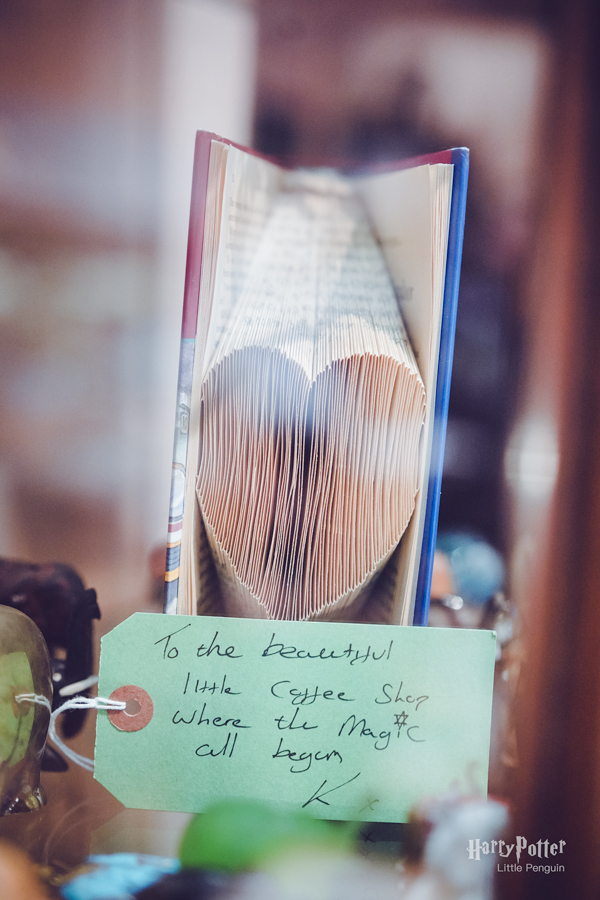 To the beautiful
little Coffee Shop
where the Magic
all began
K x
HarryPotter
Little Penguin